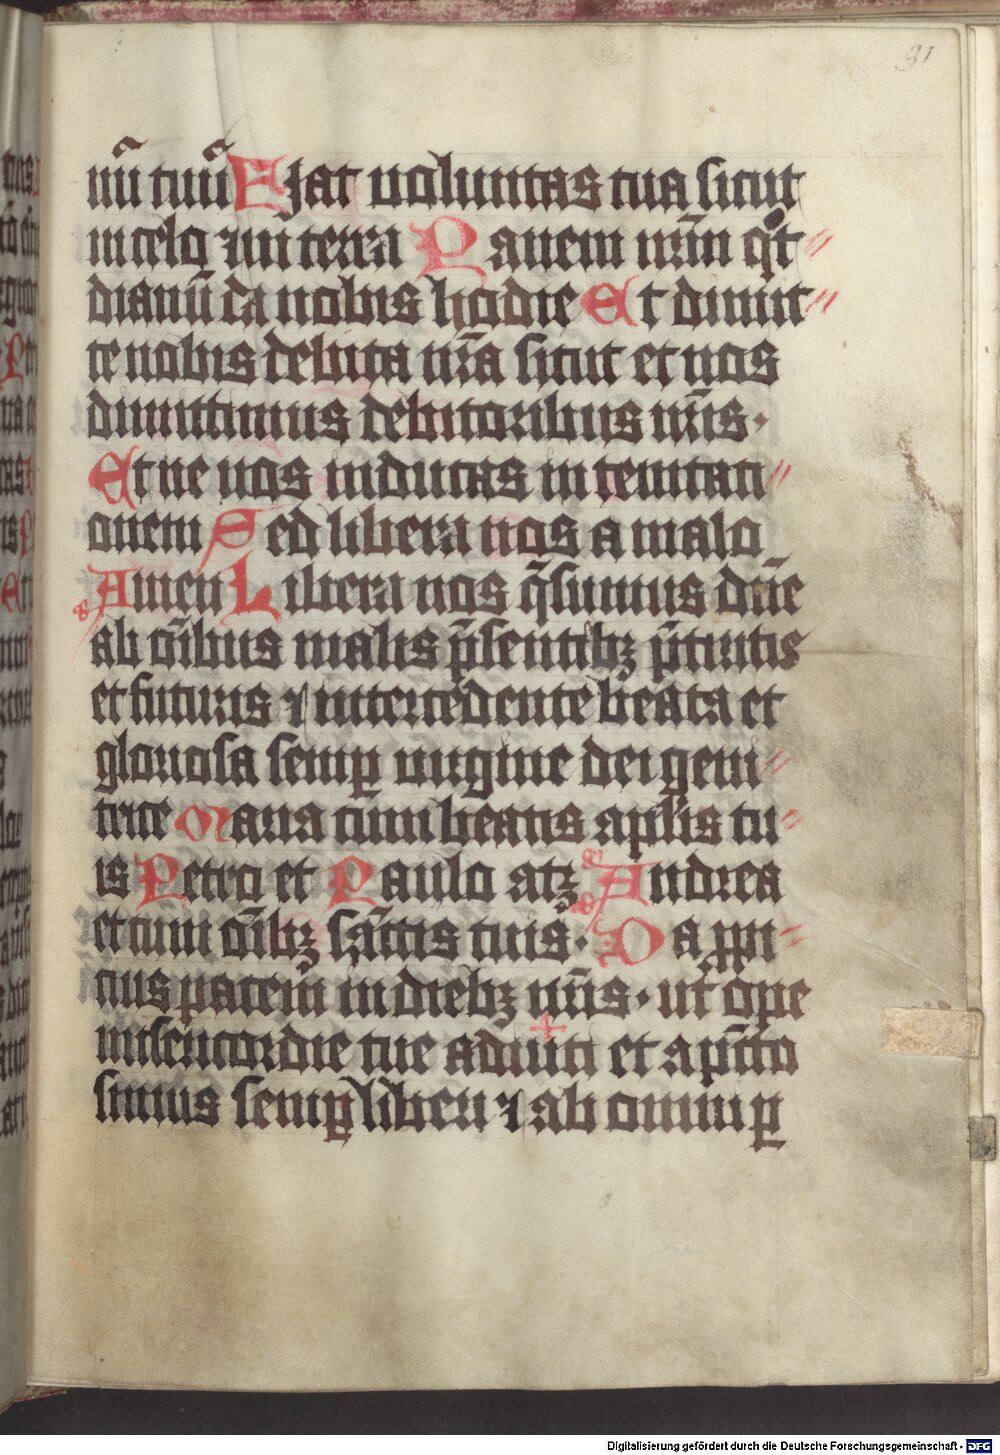 91
nū tuū Fiat voluntas tua sicut
in celo ⁊ in terra Panem nr̄m q̊t
dianū da nobis hodie Et dimit
te nobis debita nr̄a sicut et nos
dimittimus debitoribus nr̄is·
Et ne nos inducas in temtati
onem Sed libera nos a malo
Amen Libera nos q̄sumus dn̄e
ab oībus malis p̄sentibꝫ p̄titis
et futuris ⁊ intercedente beata et
gloriosa semꝑ virgine dei geni
trice Maria cum beatis aplīs tu
is Petro et Paulo atꝫ Andrea
et cum oībꝫ sāctis tuis· Da ꝓpi
cius pacem in diebꝫ nr̄is· ut ope
misericordie tue adiuti et a pc̄cto
simus semꝑ liberi ⁊ ab omni ꝑ
Digitalisierung gefördert durch die Deutsche Forschungsgemeinschaft - DFG